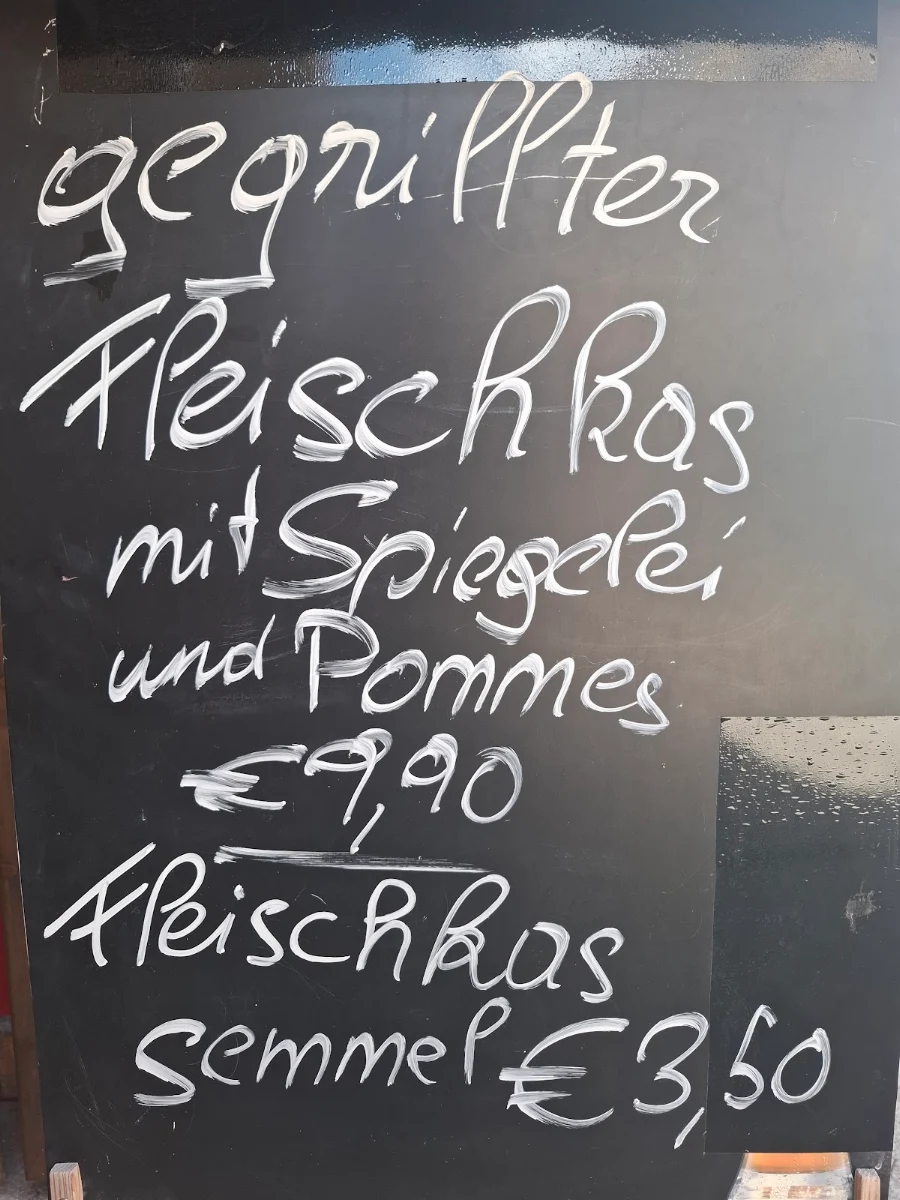 gegrillter
Fleischkas
mit Spiegelei
und Pommes
€9,90
Fleischkas
semmel €3,50